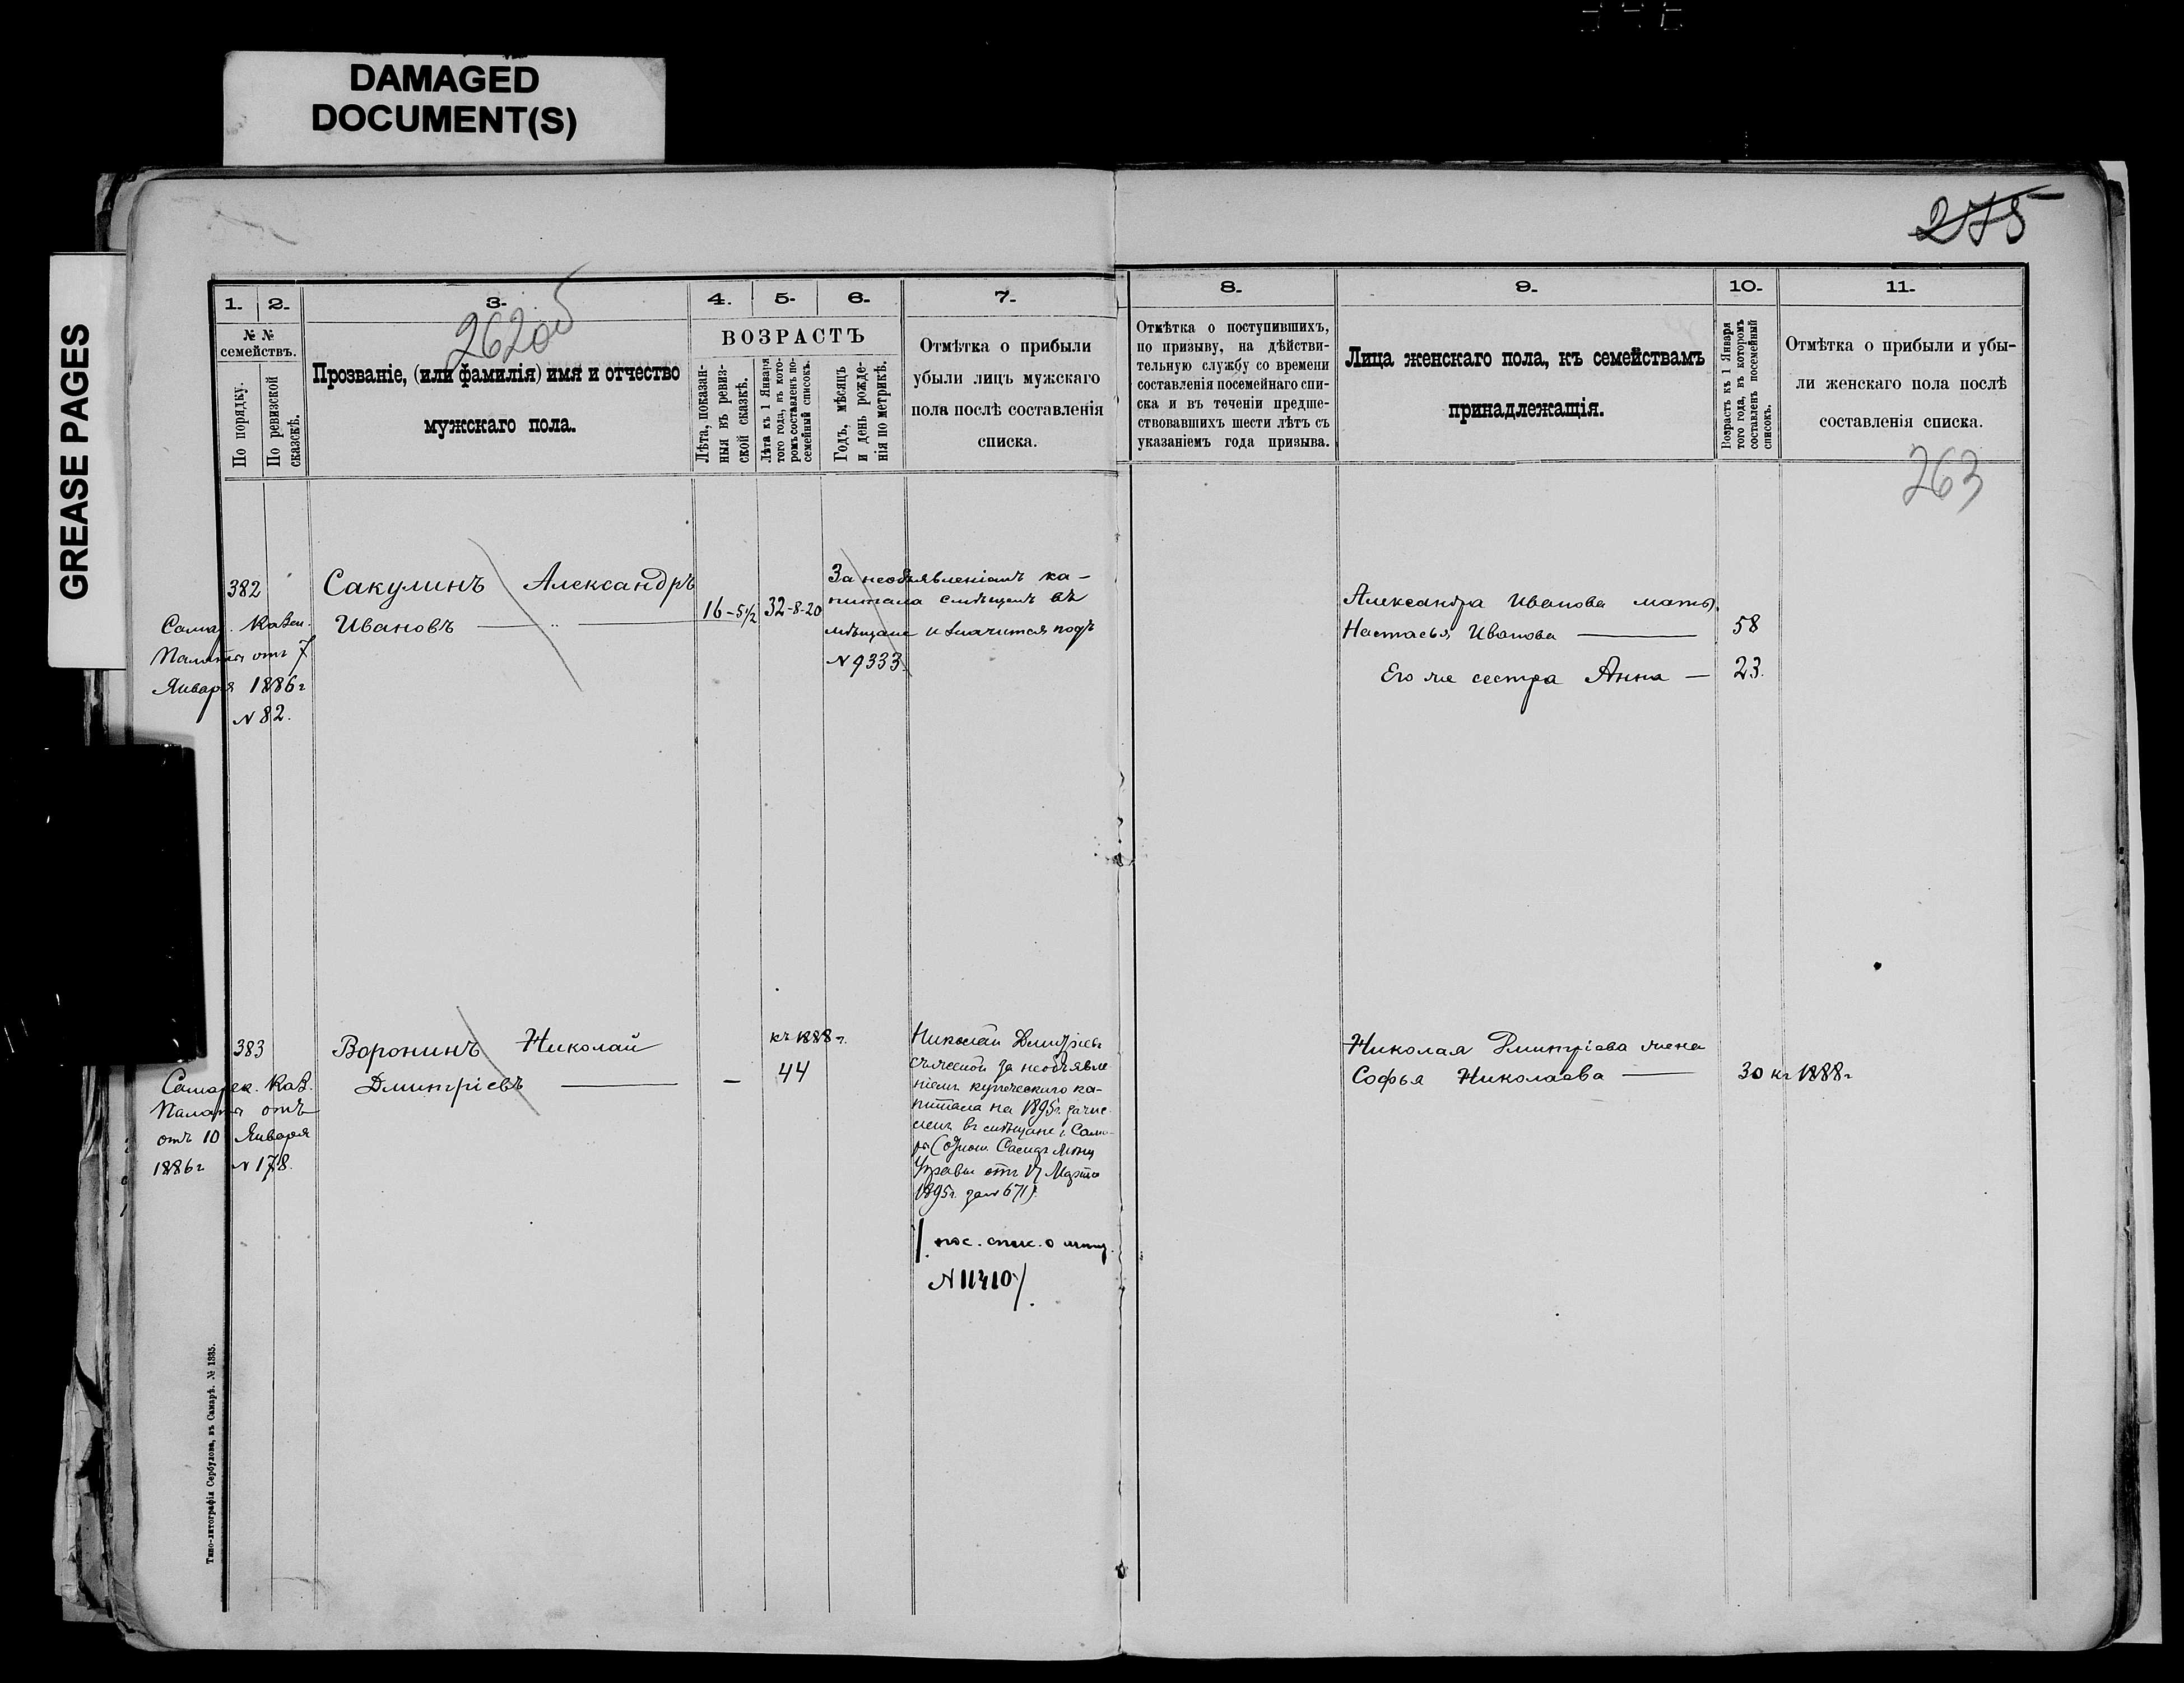 DAMAGED
DOCUMENT(S)
GREASE PAGES
275
262об
263
1. 2. 3. 4. 5. 6. 7.
№ №
семействъ.
По порядку.
По ревизской
сказскѣ.
Прозваніе, (или фамилія) имя и отчество
мужскаго пола.
ВОЗРАСТЪ
Лѣта, показан-
ныя въ ревиз-
ской сказкѣ.
Лѣта къ 1 Января
того года, въ кото-
ромъ составленъ по-
семейный списокъ.
Годъ, мѣсяцъ
и день рожде-
нія по метрикѣ.
Отмѣтка о прибыли
убыли лицъ мужскаго
пола послѣ составленія
списка.
8. 9. 10. 11.
Отмѣтка о поступившихъ,
по призыву, на дѣйстви-
тельную службу со времени
составленія посемейнаго спи-
ска и въ теченіи предше-
ствовавшихъ шести лѣтъ съ
указаніемъ года призыва.
Лица женскаго пола, къ семействамъ
принадлежащія.
Возрастъ къ 1 Января
того года, въ которомъ
составленъ посемейный
списокъ.
Отмѣтка о прибыли и убы-
ли женскаго пола послѣ
составленія списка.
382
Самар. Казен.
Палаты отъ 7
Января 1886 г
№ 82.
Сакулинъ Александръ
Ивановъ
16-5½
32-8-20
За необъявленіемъ ка-
питала смѣщенъ въ
мѣщане и значится подъ
№ 9333.
Александра Иванова мать
Настасья Иванова
58
Его же сестра Анна
23.
383
Самарск. Каз.
Палаты отъ
отъ 10 Января
1886 г № 178.
Воронинъ Николай
Дмитріевъ
—
къ 1888 г.
44
Николай Дмитріевъ
съ женой за необъявле
ніемъ купеческаго ка-
питала на 1895 г. зачис
ленъ въ мѣщане г. Сама-
ры (отнош. Самар Мѣщ
Управы отъ 17 Марта
1895 г. за № 671).
/ пос. спис. о мѣщ.
№ 11410 /
Николая Дмитріева жена
Софья Николаева
30 къ 1888 г
Типо-литографія Сербулова, въ Самарѣ. № 1335.